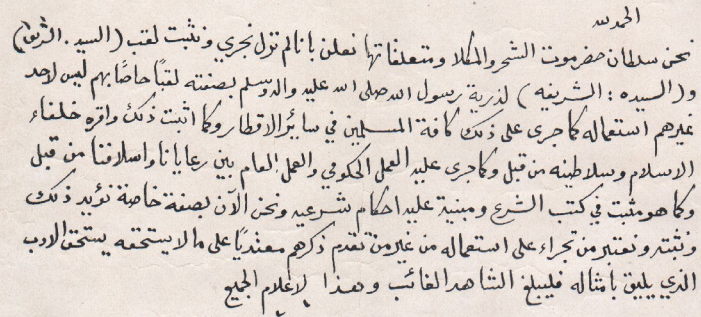 الحمد لله
نحن سلطان حضرموت الشحر والمكلا ومتعلقاتها نعلن بانا لم نزل نجري ونثبت لقب (السيد. الشريف)
و(السيده: الشريفه) لذرية رسول الله صلى الله عليه واله وسلم بصفته لقبًا خاصًا بهم ليس لاحد
غيرهم استعماله كما جرى على ذلك كافة المسلمين في سائر الاقطار وكما اثبت ذلك واقره خلفاء
الاسلام وسلاطينه من قبل وكما جرى عليه العمل الحكومي والعمل العام بين رعايانا واسلافنا من قبل
وكما هو مثبت في كتب الشرع ومبنية عليه احكام شرعيه ونحن الآن بصفة خاصة نؤيد ذلك
ونثبته ونعتبر من تجراء على استعماله من غير من تقدم ذكرهم معتديًا على ما لا يستحقه يستحق الادب
الذي يليق بامثاله فليبلغ الشاهد الغائب وهذا لاعلام الجميع